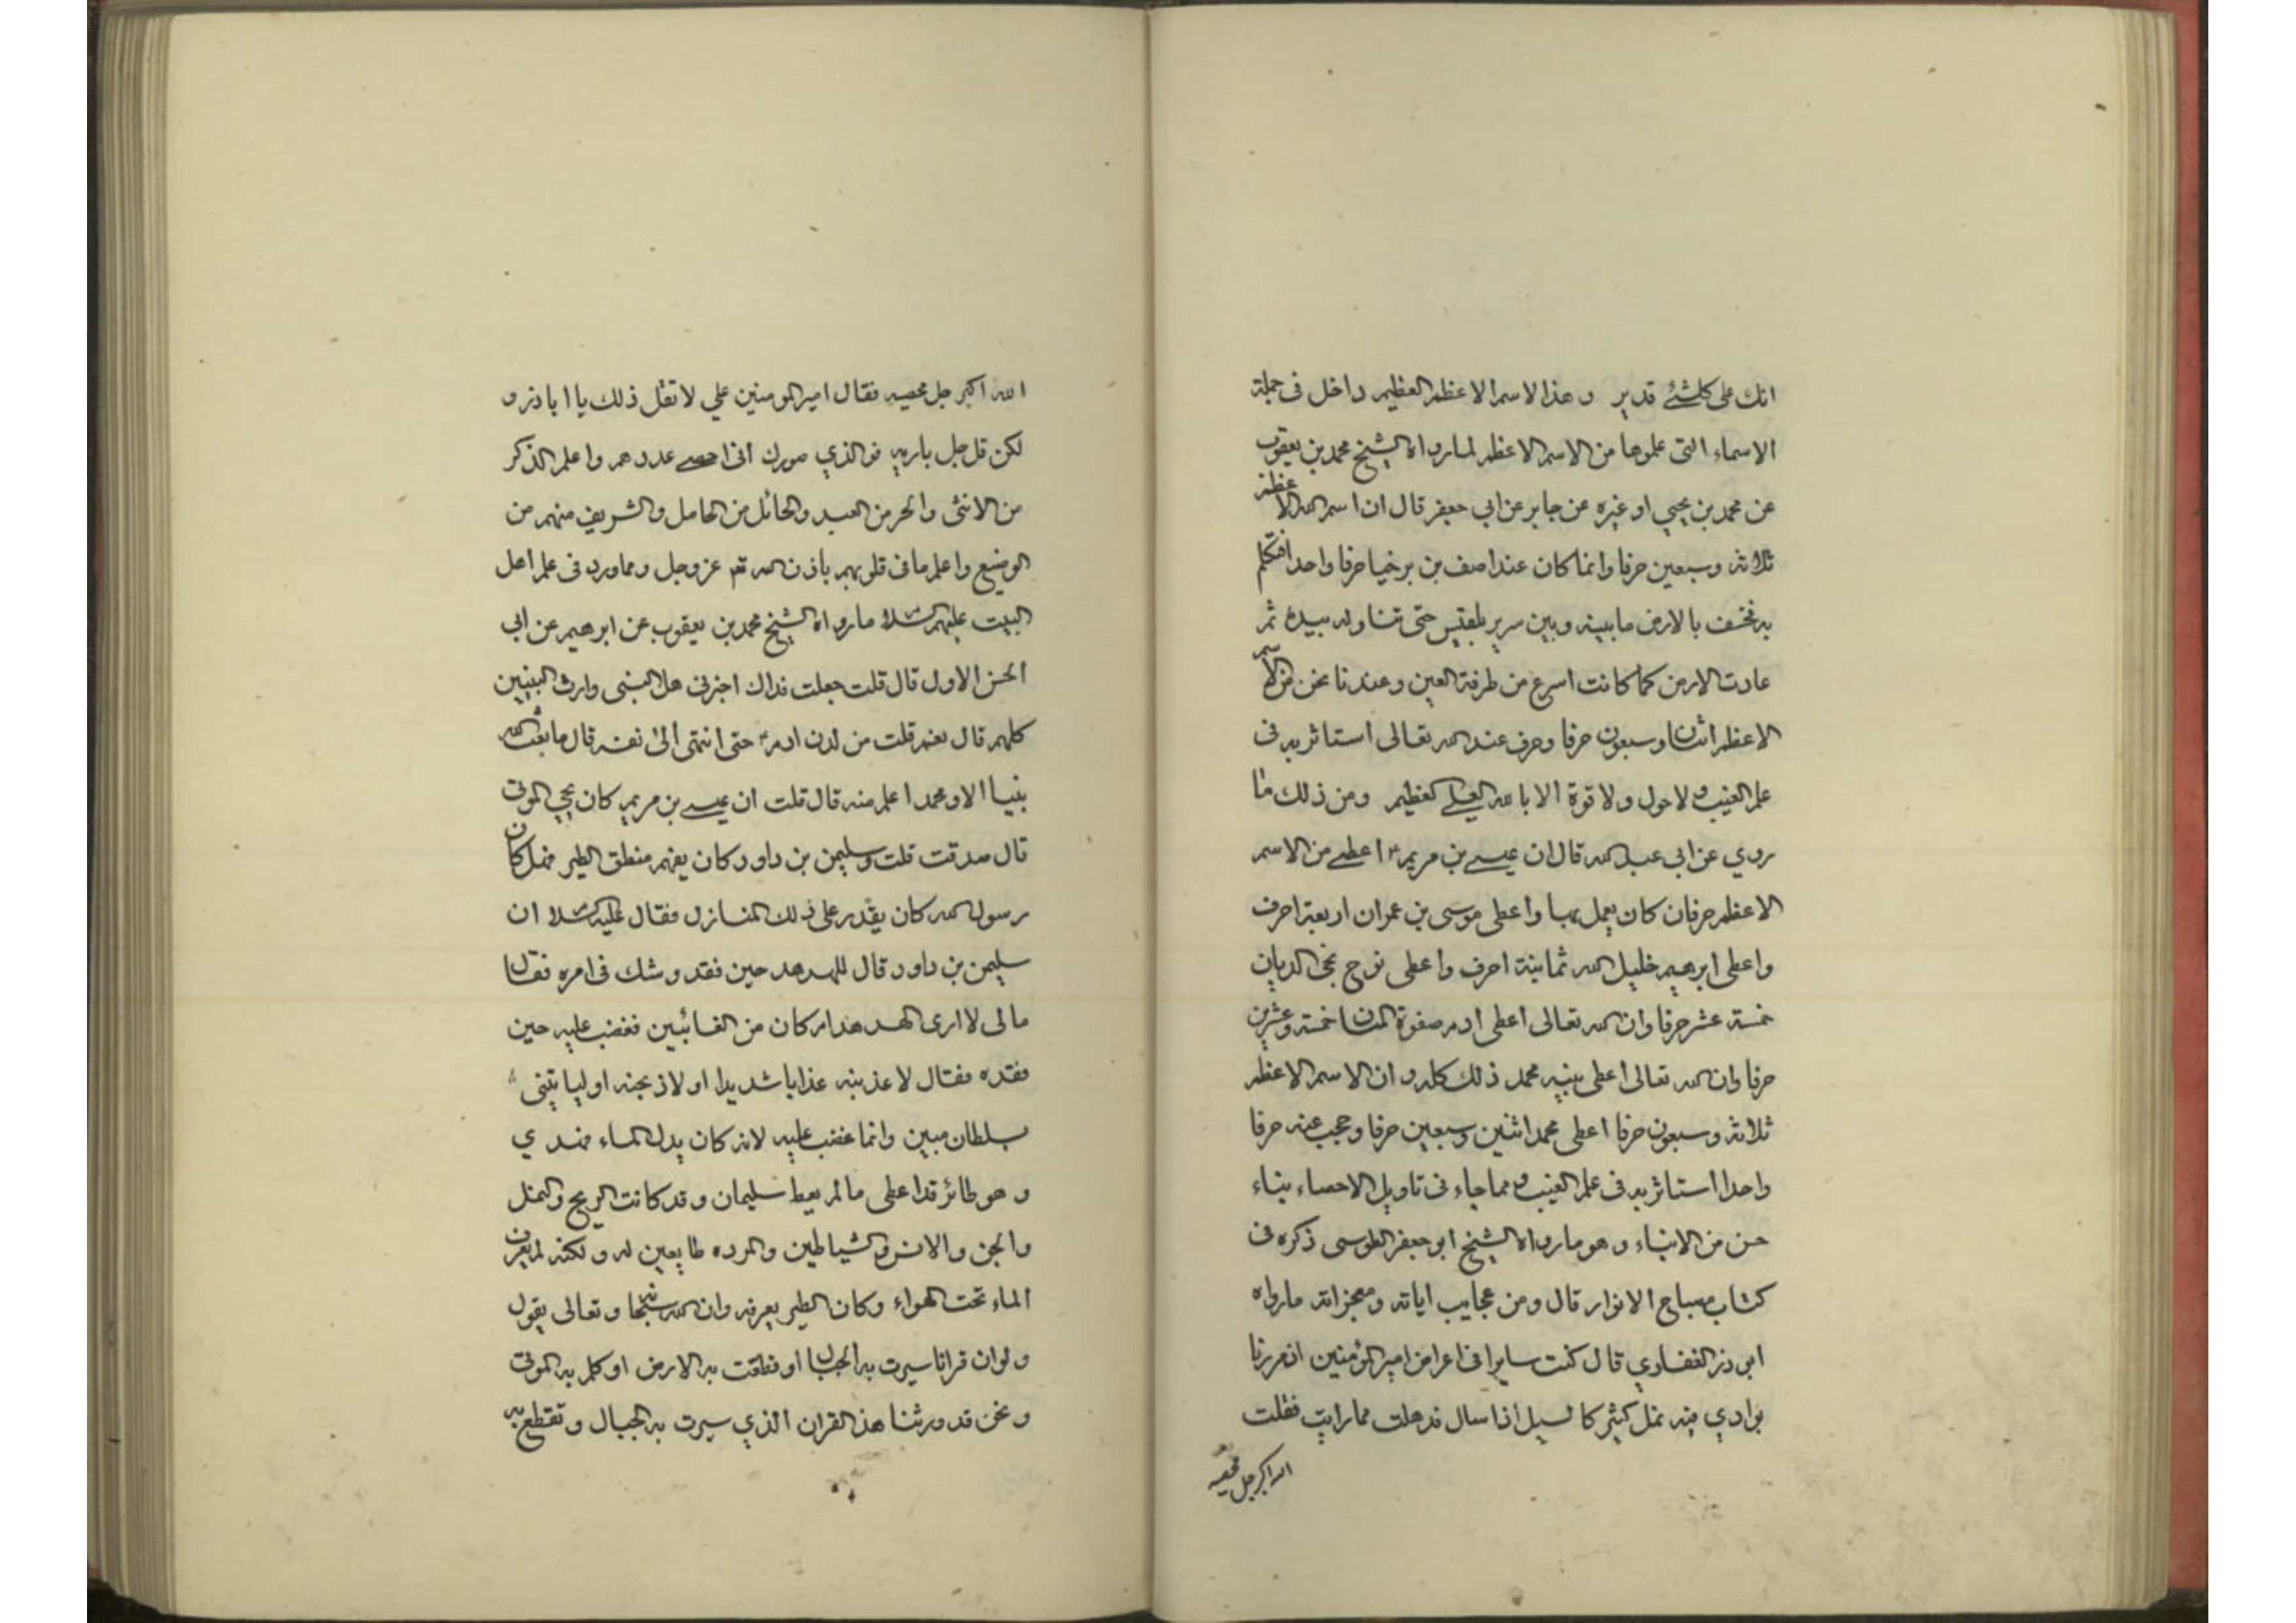 انك على كلشئ قدير وهذا الاسم الاعظم العظيم داخل فى جملة
الاسماء التى علموها من الاسم الاعظم لما رواه الشيخ محمد بن يعقوب
عن محمد بن يحيي او غيره عن جابر عن ابي جعفر قال ان اسم الله الاعظم
ثلاثة وسبعين حرفا وانما كان عند اصف بن برخيا حرفا واحدا فتكلم
به فخسف بالارض ما بينه وبين سرير بلقيس حتى تناوله بيده ثم
عادت الارض كما كانت اسرع من طرفة العين وعندنا نحن من الاسم
الاعظم اثنان وسبعون حرفا وحرف عند الله تعالى استاثر به فى
علم الغيب ولا حول ولا قوة الا بالله العلي العظيم ومن ذلك ما
روي عن ابي عبد الله قال ان عيسى بن مريم ع اعطى من الاسم
الاعظم حرفان كان يعمل بها واعطى موسى بن عمران اربعة احرف
واعطى ابرهيم خليل الله ثمانية احرف واعطى نوح نجى الديان
خمسة عشر حرفا وان الله تعالى اعطى ادم صفوة المنان خمسة وعشرين
حرفا وان الله تعالى اعطى نبيه محمد ذلك كله وان الاسم الاعظم
ثلاثة وسبعون حرفا اعطى محمد اثنين وسبعين حرفا وحجب عنه حرفا
واحدا استاثر به فى علم الغيب ومما جاء فى تاويل الاحصاء بناء
حسن من الانباء وهو ما رواه الشيخ ابو جعفر الطوسى ذكره فى
كتاب مصباح الانوار قال ومن عجايب اياته ومعجزاته مارواه
ابو ذر الغفاري قال كنت سايرا فى اعراض امير المؤمنين اذ مررنا
بوادي فيه نمل كثير كالسيل اذا سال فذهلت مما رايت فقلت
الله اكبر جل محصيه
الله اكبر جل محصيه فقال امير المومنين علي لا تقل ذلك يا ابا ذر و
لكن قل جل باريه فوالذي صورك انى احصى عددهم واعلم الذكر
من الانثى والحر من العبد والحائل من الحامل والشريف منهم من
الوضيع واعلم ما فى قلوبهم باذن الله تع عز وجل ومما ورد فى علم اهل
البيت عليهم السلام ما رواه الشيخ محمد بن يعقوب عن ابرهيم عن ابي
الحسن الاول قال قلت جعلت فداك اخبرنى هل النبى وارث النبيين
كلهم قال نعم قلت من لدن ادم ع حتى انتهى الى نفسه قال ما بعث الله
نبيا الا ومحمد اعلم منه قال قلت ان عيسى بن مريم كان يحيي الموتى
قال صدقت قلت وسليمن بن داود كان يفهم منطق الطير فهل كان
رسول الله كان يقدر على ذلك المنازل فقال عليه السلام ان
سليمن بن داود قال للهدهد حين فقد وشك فى امره فقال
مالى لا ارى الهدهد ام كان من الغائبين فغضب عليه حين
فقده فقال لاعذبنه عذابا شديدا او لاذبحنه او ليا تينى
بسلطان مبين وانما غضب عليه لانه كان يدل الماء فهذي
وهو طائر قد اعطى ما لم يعط سليمان وقد كانت الريح والنمل
والجن والانس والشياطين والمرده طايعين له ولكنه لم يعرف
الماء تحت الهواء وكان الطير يعرفه وان الله سبحانه وتعالى يقول
ولو ان قرانا سيرت به الجبال او قطعت به الارض او كلم به الموتى
ونحن قد ورثنا هذ القران الذي سيرت به الجبال وتقطع به